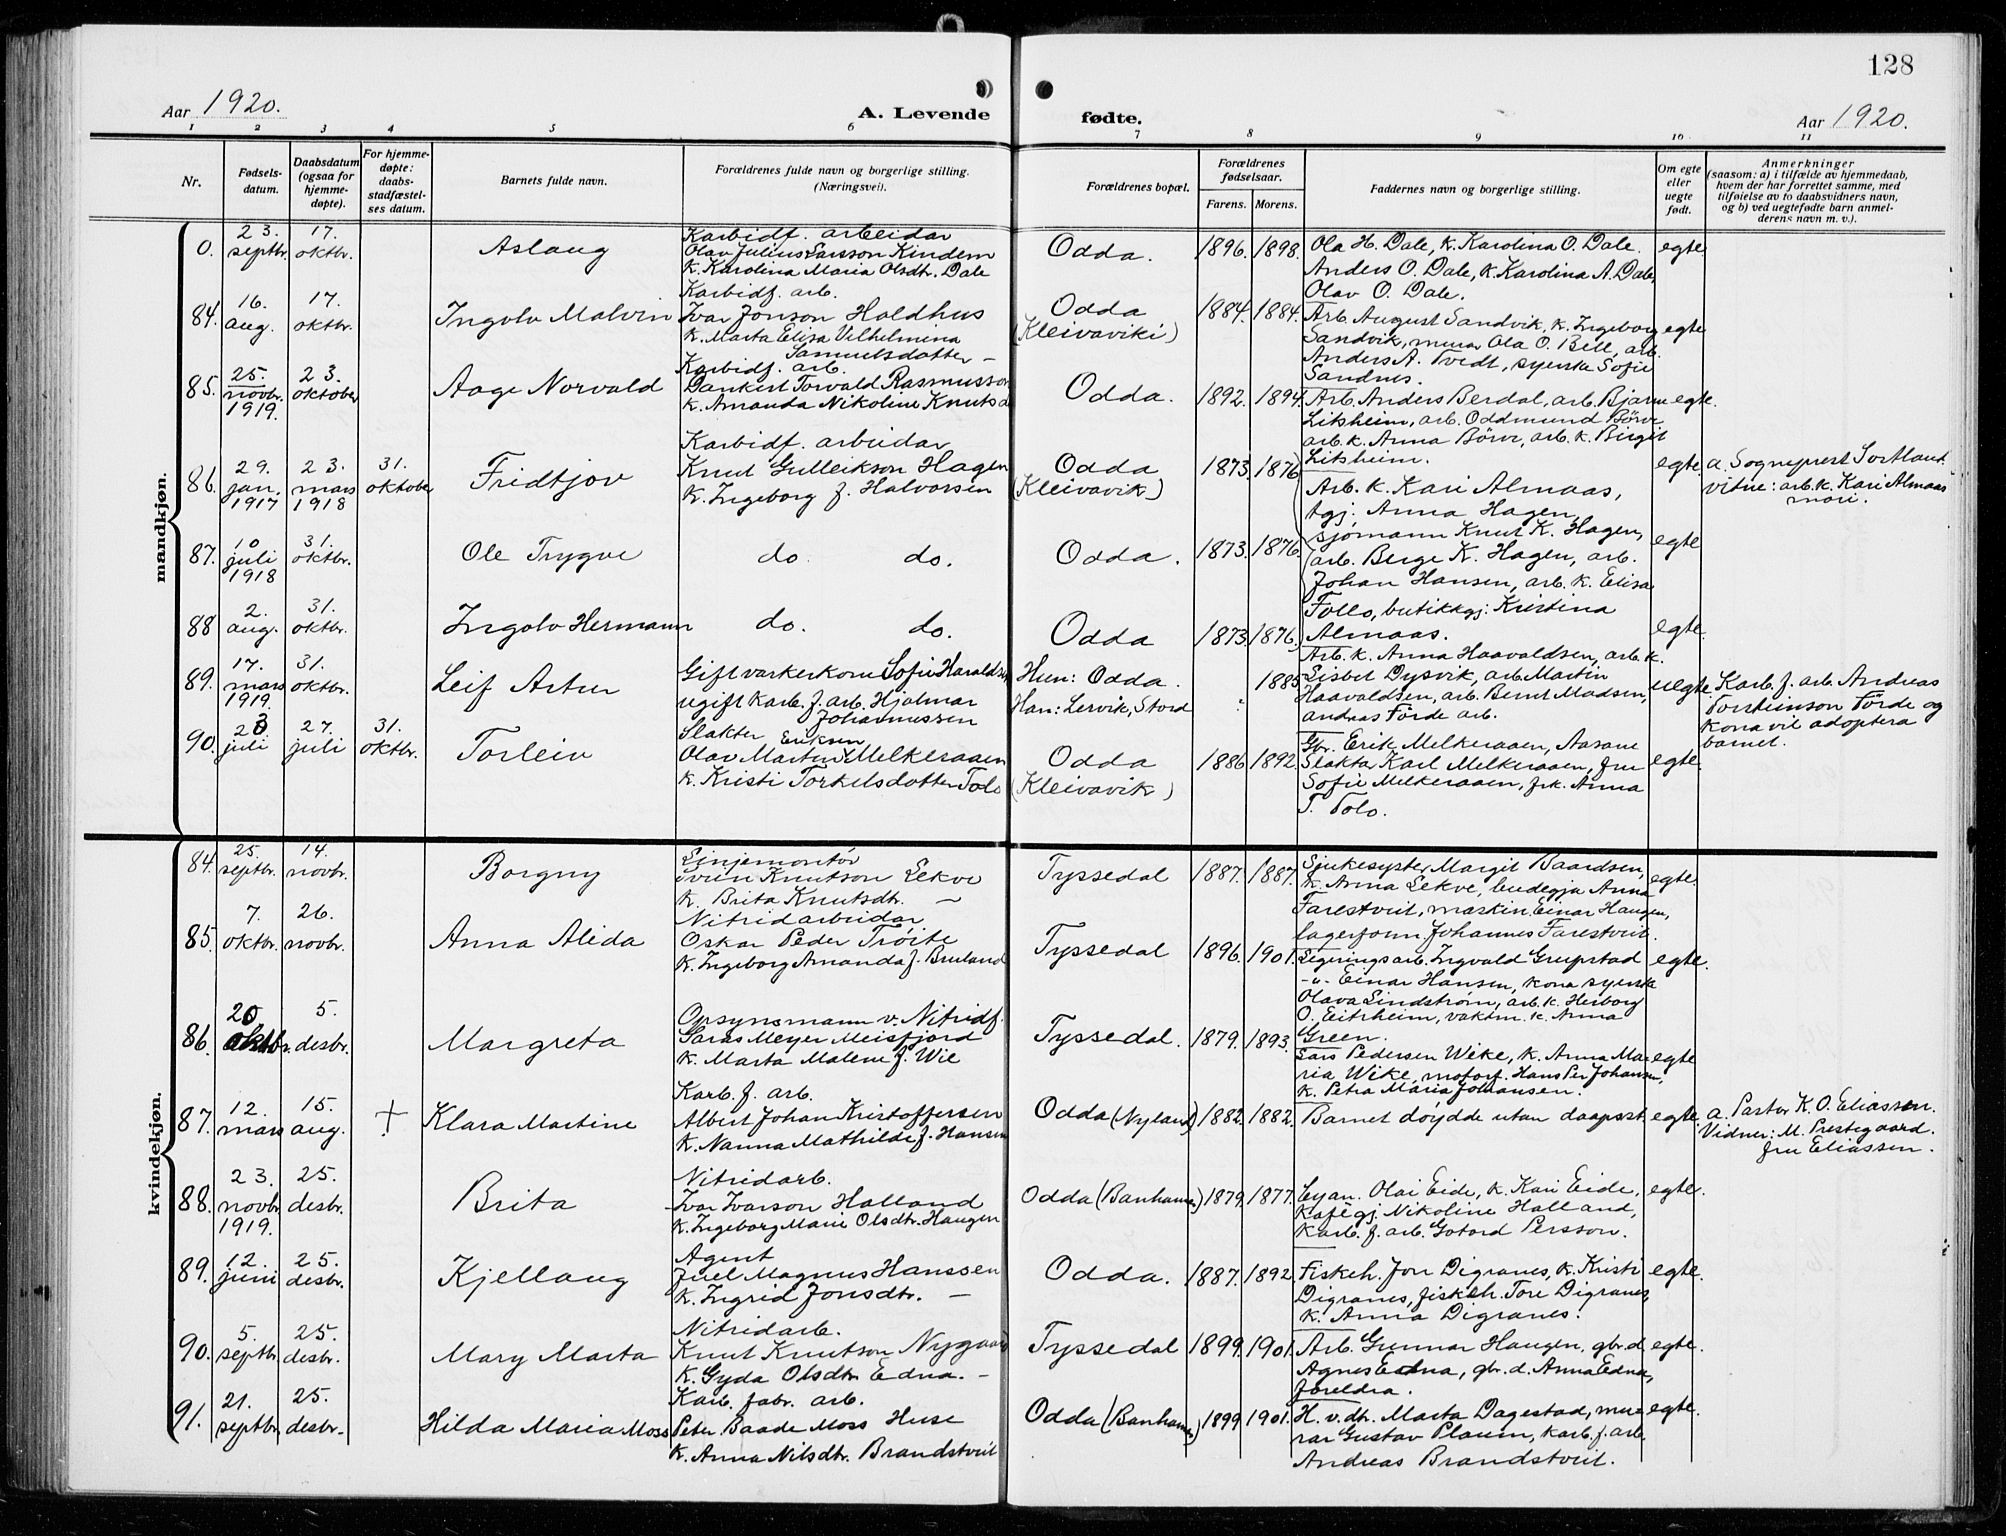 128
Aar 1920.
A. Levende fødte.
Aar 1920.
1 2 3 4 5 6 7 8 9 10 11
Nr.
Fødsels-
datum.
Daabsdatum
(ogsaa for
hjemme-
døpte).
For hjemme-
døpte:
daabs-
stadfæstel-
ses datum.
Barnets fulde navn.
Forældrenes fulde navn og borgerlige stilling.
(Næringsvei).
Forældrenes bopæl.
Forældrenes
fødselsaar.
Farens. Morens.
Faddernes navn og borgerlige stilling.
Om egte
eller
uegte
født.
Anmerkninger
(saasom: a) i tilfælde av hjemmedaab,
hvem der har forrettet samme, med
tilføielse av to daabsvidners navn,
og b) ved uegtefødte barn anmel-
derens navn m. v.).
mandkjøn.
0.
23.
septbr.
17.
oktbr.
Aslaug
Karbidf. arbeidar
Olav Julius Larsson Kindem
K. Karolina Maria Olsdt. Dale
Odda.
1896. 1898.
Ola H. Dale, K. Karolina O. Dale.
Anders O. Dale, K. Karolina A. Dale,
Olav O. Dale.
egte
84.
16.
aug.
17.
oktbr.
Ingolv Malvin
Karbidf. arb.
Ivar Jonson Haldhus
K. Marta Elisa Vilhelmina
Samuelsdotter —
Odda
(Kleivaviki)
1884. 1884.
Arb. August Sandvik, K. Ingeborg
Sandvik, murar Ola O. Bell, arb.
Anders A. Tvedt, syerske Sofie
Sandnes.
egte
85.
25.
novbr.
1919.
23.
oktober
Aage Norvald
Karbidf. arb.
Dankert Torvald Rasmusson
K. Amanda Nikoline Knutsd
Odda.
1892. 1894.
Arb. Anders Berdal, arb. Bjarne
Litsheim, arb. Oddmund Börve
arb. k. Anna Börve, arb. k. Birgit
Litsheim.
egte.
86.
29.
jan.
1917
23.
mars
1918
31.
oktober
Fridtjov
Karbidf. arbeidar
Knut Gulleikson Hagen
K. Ingeborg f. Halvorsen
Odda
(Kleivavik)
1873. 1876
Arb. k. Kari Almaas,
tgj. Anna Hagen,
sjömann Knut K. Hagen,
arb. Berge K. Hagen, arb.
Johan Hansen, arb. k. Elisa
Follo, butikkgj. Kristina
Almaas.
egte
a. Sogneprest Sortland.
vitne: arb. k. Kari Almaas
mori.
87.
10
juli
1918
31.
oktbr.
Ole Trygve
do. do.
Odda.
1873. 1876.
egte
88
2.
aug.
31.
oktbr.
Ingolv Hermann
do. do.
Odda
1873. 1876.
egte.
89.
17.
mars
1919.
31.
oktbr.
Leif Artur
Gift varkerkone Sofie Haraldsen
ugift Karb. f. arb. Hjalmar
Johannessen
Hun: Odda.
Han: Lervik, Stord
1885
Arb. k. Anna Haavaldsen, arb. k.
Lisbet Dysvik, arb. Martin
Haavaldsen, arb. Bernt Madsen,
andreas Förde arb.
uegte.
Karb. f. arb. Andreas
Torsteinson Förde og
kona vil adoptera
barnet.
90.
23
juli
27.
juli
31.
oktbr.
Torleiv
Slakter
Eriksen
Olav Martin Melkeraaen
K. Kristi Torkelsdotter Tolo
Odda
(Kleivavik)
1886 1892
Gbr. Erik Melkeraaen, Aasane
Slakta Karl Melkeraaen, fru
Sofie Melkeraaen, frk. Anna
T. Tolo.
egte.
kvindekjøn.
84.
25.
septbr.
14.
novbr.
Borgny
Linjemontör
Svein Knutson Lekve
K. Brita Knutsdt. —
Tyssedal
1887. 1887.
Sjukesyster Margit Baardsen,
K. Anna Lekve, budegja Anna
Farestveit, maskin. Einar Haugen,
lagerform. Johannes Farestveit.
egte.
85.
7.
oktbr.
26.
novbr.
Anna Alida
Nitridarbeidar
Oskar Peder Tröite
K. Ingeborg Amanda f. Bruland
Tyssedal
1896. 1901.
Legeringsarb. Ingvald Grupstad
-"- Einar Hansen, kona syerske
Olava Lindström, arb. k. Herborg
O. Eitrheim, vaktm. k. Anna
Green.
egte.
86.
20
oktbr.
5.
desbr.
Margreta
Opsynsmann v. Nitridf.
Lars Meyer Meisfjord
K. Marta Malene f. Wie
Tyssedal.
1879. 1893.
Lars Pedersen Wike, K. Anna Ma-
ria Wike, motorf. Hans Per Johansen,
K. Petra Maria Johansen.
egte
87.
12.
mars
15.
aug.
+
Klara Martine
Karb. f. arb.
Albert Johan Kristoffersen
K. Nanna Mathilde f. Hansen
Odda (Nyland)
1882. 1882.
Barnet döydde utan daapsst.
egte.
a. Pastor K. O. Eliassen.
Vidner: M. Prestegaard.
fru Eliassen.
88.
23.
novbr.
1919.
25.
desbr.
Brita
Nitridarb.
Ivar Ivarson Halland
K. Ingeborg Marie Olsdtr. Haugen
Odda (Banhamen)
1879. 1877.
Olai Eide, K. Kari Eide,
Kafégj. Nikoline Halland,
Karb. f. arb. Gotord Persson.
egte.
89.
12.
juni
25.
desbr.
Kjellaug
Agent
Juel Magnus Hanssen
K. Ingrid Jonsdtr. —
Odda.
1887. 1892.
Fiskeh. Jon Digranes, K. Kristi
Digranes, fiskeh. Tore Digranes,
K. Anna Digranes.
egte.
90.
5.
septbr.
25.
desbr.
Mary Marta
Nitridarb.
Knut Knutson Nygaard
K. Gyda Olsdtr. Edna. —
Tyssedal
1899. 1901.
Arb. Gunnar Haugen, gbr. d.
Agnes Edna, gbr. d. Anna Edna,
foreldra.
egte.
91.
21.
septbr.
25.
desbr.
Hilda Maria Moss
Karb. fabr. arb.
Peter Baade Moss Huse
K. Anna Nilsdtr. Brandstveit
Odda (Banhamen)
1899 1901.
H. v. dtr. Marta Dagestad, mu-
rar Gustav Plaum, Karb. f. arb.
Andreas Brandstveit.
egte.